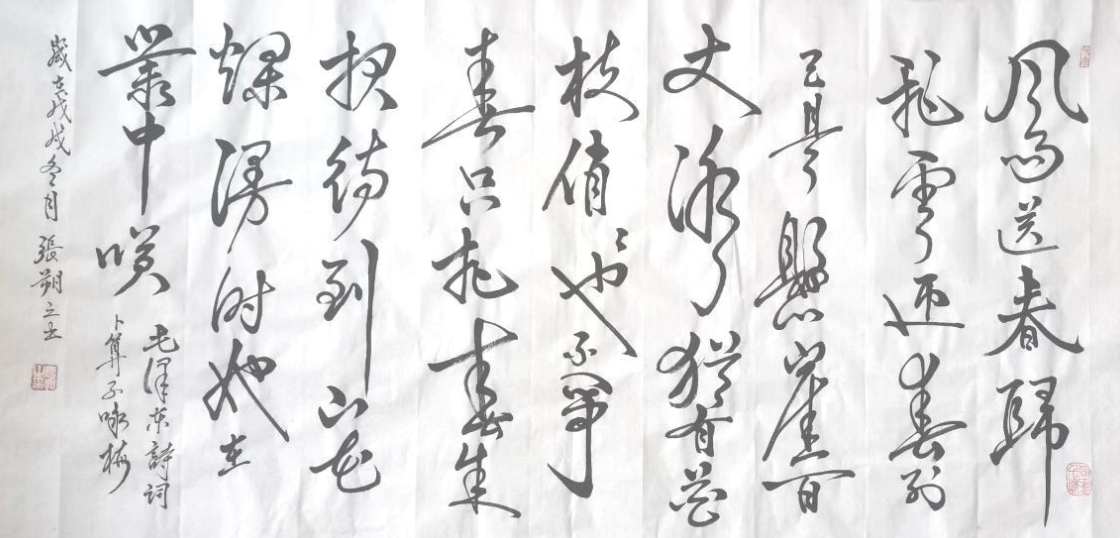 風雨送春歸
飛雪迎春到
已是懸崖百
丈冰猶有花
枝俏〻也不爭
春只把春来
报待到山花
爛漫时她在
叢中咲
毛澤东詩詞
卜算子咏梅
歲在戊戌冬月 張朔立书